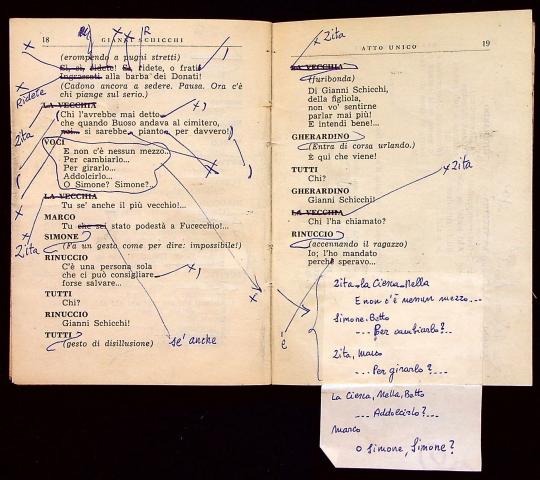 18 GIANNI SCHICCHI
(erompendo a pugni stretti)
Sì, sì, ridete! Sì, ridete, o frati!
Ingrassati alla barba dei Donati!
(Cadono ancora a sedere. Pausa. Ora c'è
chi piange sul serio.)
Ridete
LA VECCHIA
Chi l'avrebbe mai detto
che quando Buoso andava al cimitero,
si sarebbe pianto per davvero!
Zita
VOCI
E non c'è nessun mezzo...
Per cambiarlo...
Per girarlo...
Addolcirlo...
O Simone? Simone?...
LA VECCHIA
Tu se' anche il più vecchio!...
MARCO
Tu che sei stato podestà a Fucecchio!...
SIMONE
Zita
(Fa un gesto come per dire: impossibile!)
RINUCCIO
C'è una persona sola
che ci può consigliare
forse salvare...
TUTTI
Chi?
RINUCCIO
Gianni Schicchi!
TUTTI
(gesto di disillusione)
se' anche
x Zita
ATTO UNICO 19
LA VECCHIA
(furibonda)
Di Gianni Schicchi,
della figliola,
non vo' sentirne
parlar mai più!
E intendi bene!...
GHERARDINO
(Entra di corsa urlando.)
È qui che viene!
TUTTI
Chi?
GHERARDINO
Gianni Schicchi!
x Zita
LA VECCHIA
Chi l'ha chiamato?
RINUCCIO
(accennando il ragazzo)
Io; l'ho mandato
perché speravo...
è
Zita, la Ciesca, Nella
E non c'è nessun mezzo...
Simone, Betto
... Per cambiarlo?..
Zita, Marco
... Per girarlo?...
La Ciesca, Nella, Betto
... Addolcirlo?...
Marco
O Simone, Simone?